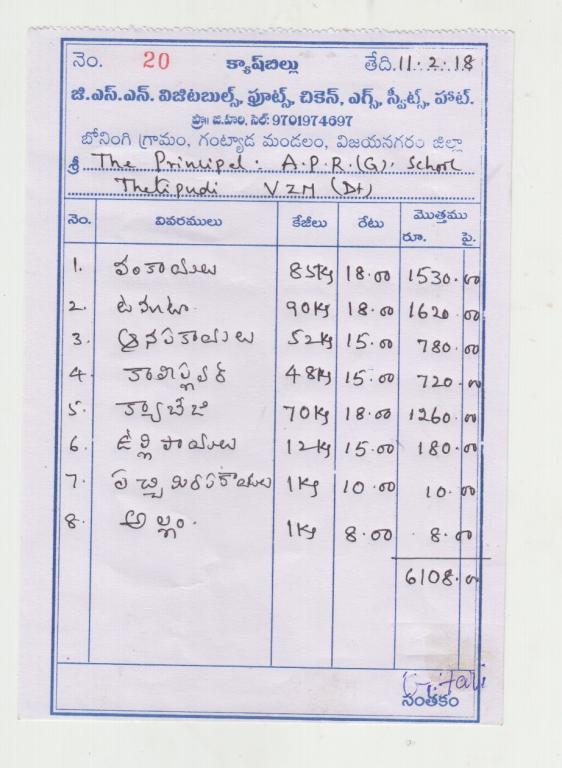 నెం. 20 క్యాష్‌బిల్లు తేది.11.2.18
జి.ఎస్.ఎన్. విజిటబుల్స్, ఫ్రూట్స్, చికెన్, ఎగ్స్, స్వీట్స్, హాట్.
ప్రొ॥ జి.హరి, సెల్: 9701974697
బోనింగి గ్రామం, గంట్యాడ మండలం, విజయనగరం జిల్లా
శ్రీ The Principel. A.P.R.(G). School
Thetipudi VZM (Dt)
నెం. వివరములు కేజీలు రేటు మొత్తము
రూ. పై.
1. వంకాయలు 85Kg 18.00 1530.00
2. టమాటా 90Kg 18.00 1620.00
3. ఆనపకాయలు 52Kg 15.00 780.00
4. కాలిఫ్లవర్ 48Kg 15.00 720.00
5. క్యాబేజి 70Kg 18.00 1260.00
6. ఉల్లిపాయలు 12Kg 15.00 180.00
7. పచ్చిమిరపకాయలు 1Kg 10.00 10.00
8. అల్లం. 1Kg 8.00 8.00
6108.00
G. Hari
సంతకం